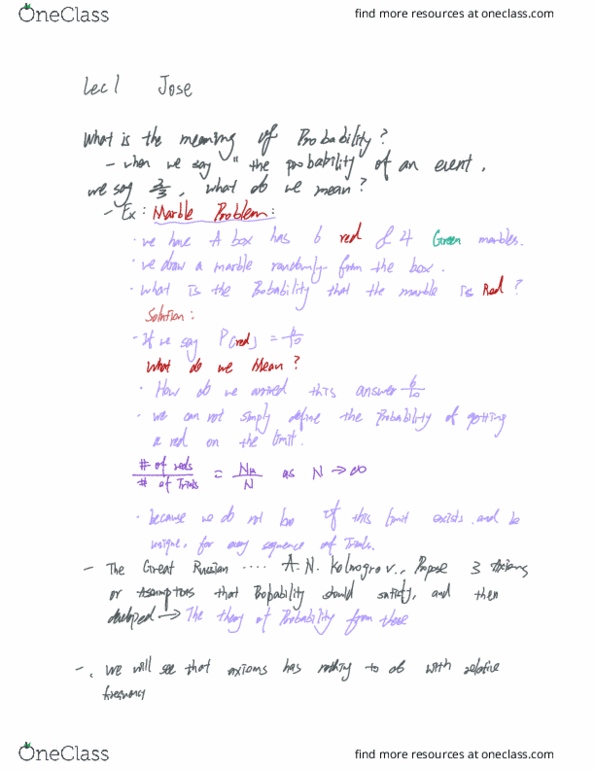 OneClass
find more resources at oneclass.com
Lec 1 Jose
What is the meaning of Probability?
- when we say "the probability of an event.
we say 2/3, what do we mean?
- Ex: Marble Problem:
· we have A box has 6 red & 4 Green marbles.
· we draw a marble randomly from the box.
· what is the Probability that the marble is Red?
Solution:
- If we say P(red) = 6/10
What do we Mean?
· How do we arrived this answer 6/10
· we can not simply define the Probability of getting
a red on the limit.
# of reds / # of Trials = / N as N → ∞
· because we do not if this limit exists and be
unique, for any sequence of Trials.
- The Great Russian .... A.N. Kolmogrov., Propose 3
or that Probability should satisfy, and then
developed → The theory of Probability from these
- . we will see that axioms has to do with relative
frequency
OneClass
find more resources at oneclass.com